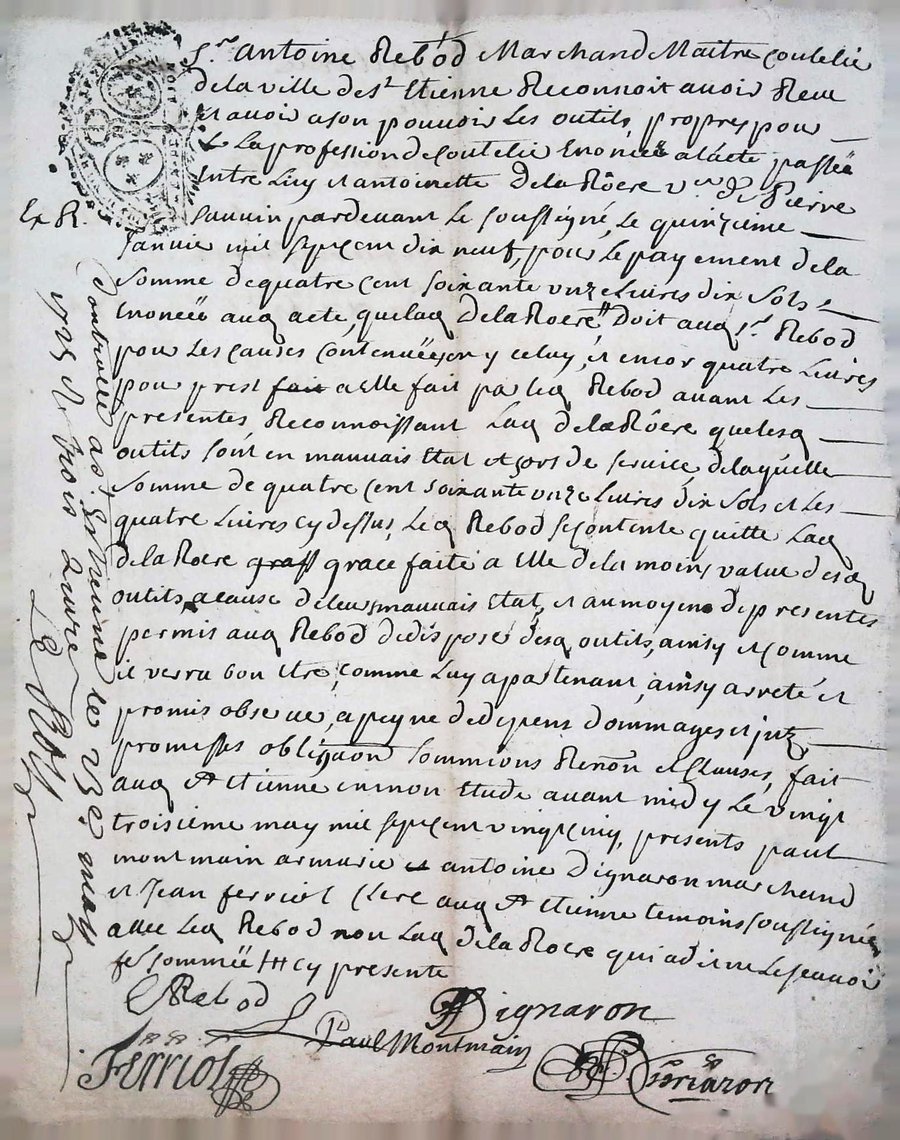 Sr antoine Rebod Marchand Maitre Coutelié
de la ville de St Etienne Reconnoit avoir Reçu
Et avoir a son pouvoir Les outils propres pour
La profession de Coutelié Enoncée a lacte passée
Entre Luy et antoinette De la Roëre ve de Pierre
Ex R.
Jauvin pardevant Le soussigné, Le quinzieme
Janvie mil Sept cent dix neuf, pour Le payement de la
Somme de quatre Cent soixante unze Livres dix Sols
Enoncëe aud acte, que lad De la Roere Doit aud Sr Rebod
pour Les Causes Contenuëes en yceluy, et encor quatre Livres
pour prest fait a Elle fait pa led Rebod avant Les
presentes Reconnoissant Lad de la Roëre que lesd
outils sont en mauvais Etat et hors de service, de laquelle
Somme de quatre Cent soixante unze Livres dix Sols et Les
quatre Livres cy dessus, Led Rebod se contente quitte Lad
de la Roere grass grace faite a Elle de la moins value desd
outils a cause de leurs mauvais Etat, et au moyen de presentes
permis aud Rebod de dispose desd outils, ainsy et Comme
il verra bon Etre, comme Luy apartenant, ainsy arreté et
promis observe, a peyne de depens dommages et
promesses obligaon Renon et Clauses, fait
aud St Etienne en mon Etude avant midy Le vingt
troisieme may mil sept cent vingt cinq, presents paul
montmain armurie et antoine Dignaron marchand
et Jean ferriol Clerc aud St Etienne temoins soussignés
avec Led Rebod non Lad de la Roere qui a dit ne Le scavoir
de ce sommëe cy presente
Rebod
Dignaron
Paul Montmain
Ferriol
Controllé a St Estienne le 23e may
1725 R trois Livre